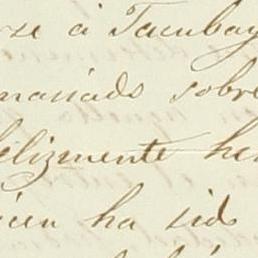 rse á Tacubay
masiado sobre
felizmente he
ien ha sido